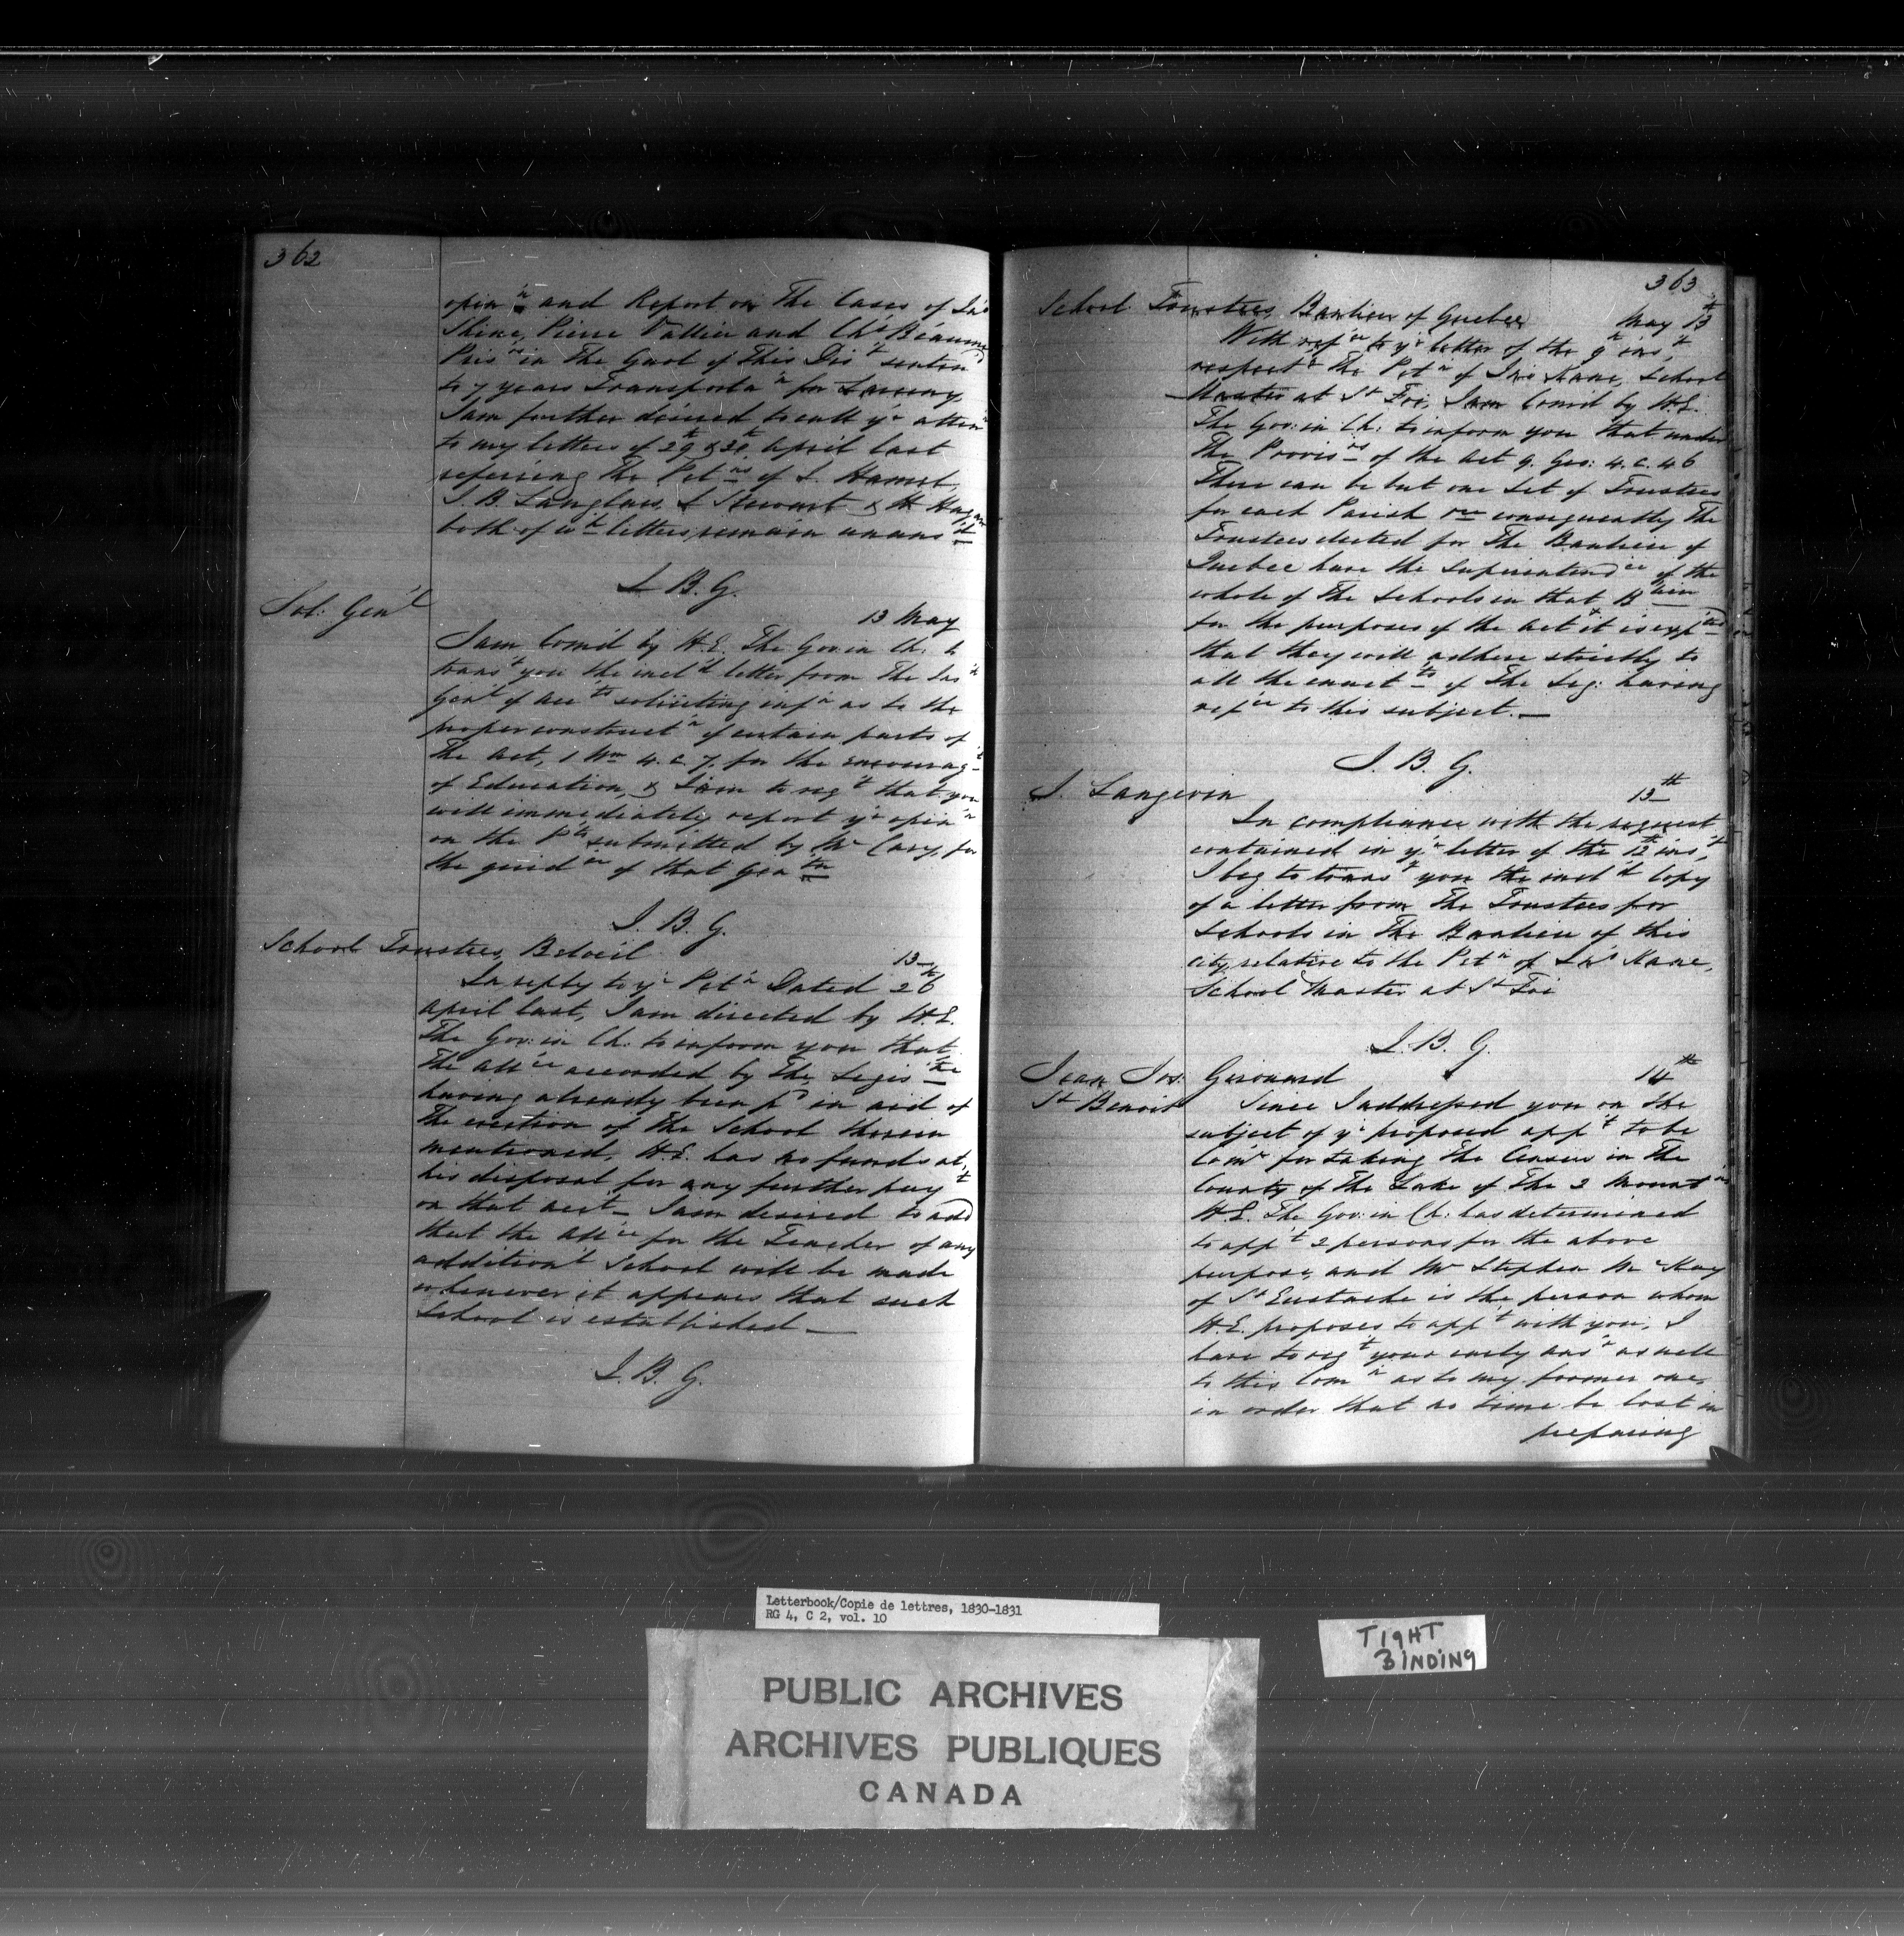 362
opin'n and Report on The Cases of Jno
Shine, Pierre Vallier and Chs Beaum
Pris'rs in The Gaol of This Dis't senten'd
to 7 years Transporta'n for Larceny,
I am further desired to call y'r atten'n
to my letters of 29th & 30th April last
referring The Pet'ns of J. Hamel,
J. B. Langlois, & Stewart & H. Hagan
both of wh letters remain unans'd
J. B. G.
Sol: Gen'l
13 May
I am Com'd by H.E. The Gov: in Ch: to
trans't you the incl'd letter from The Ins'r
Gen'l of Acc'ts soliciting inf'n as to the
proper construct'n of certain parts of
The Act, 1 Wm 4. c. 7. for the encourag't
of Education, & I am to req't that you
will immediately report y'r opin'n
on the P'ts submitted by Mr Cary, for
the guid'ce of that Gen'tn
J. B. G.
School Trustees, Beloeil
13
In reply to y'r Pet'n Dated 26th
April last, I am directed by H.E.
The Gov: in Ch: to inform you that
The All'ce accorded by The Legis're
having already been p'd in aid of
the erection of the School therein
mentioned, H.E. has no funds at
his disposal for any further pay't
on that acct_ I am desired to add
that the All'ce for the Teacher of any
addition'l School will be made
whenever it appears that such
School is established_
J. B. G.
363
School Trustees, Banlieu of Quebec
May 13th
With ref'ce to y'r letter of the 9th ins't,
respect'g The Pet'n of Jno Kane, School
Master at St Foi, I am Com'd by H.E.
The Gov: in Ch: to inform you that under
The Provis'ns of the Act 9. Geo: 4. c. 46
There can be but one Set of Trustees
for each Parish consequently The
Trustees elected for The Banlieu of
Quebec have the Superintend'ce of the
whole of The Schools in that B'lieu
for the purposes of the Act & it is exp'ted
that they will adhere strictly to
all the enact'ts of The Leg: having
ref'ce to this subject._
J. B. G.
J. Langevin
13th
In compliance with the request
contained in y'r letter of the 12th ins't,
I beg to trans't you the incl'd Copy
of a letter from The Trustees for
Schools in The Banlieu of this
City, relative to the Pet'n of Jno Kane,
School Master at St Foi
J. B. G.
Jean Jos: Girouard
14th
St Benoit
Since I addressed you on the
subject of y'r proposed app't to be
Com'r for taking The Census in The
County of The Lake of The 2 Mount'ns
H.E. The Gov: in Ch: has determined
to app't 2 persons for the above
purpose, and Mr Stephen McKay
of St Eustache is the person whom
H.E. proposes to app't with you, I
have to req't your early ans'r as well
to this Com'n as to my former one,
in order that no time be lost in
preparing
Letterbook/Copie de lettres, 1830-1831
RG 4, C 2, vol. 10
TIGHT
BINDING
PUBLIC ARCHIVES
ARCHIVES PUBLIQUES
CANADA